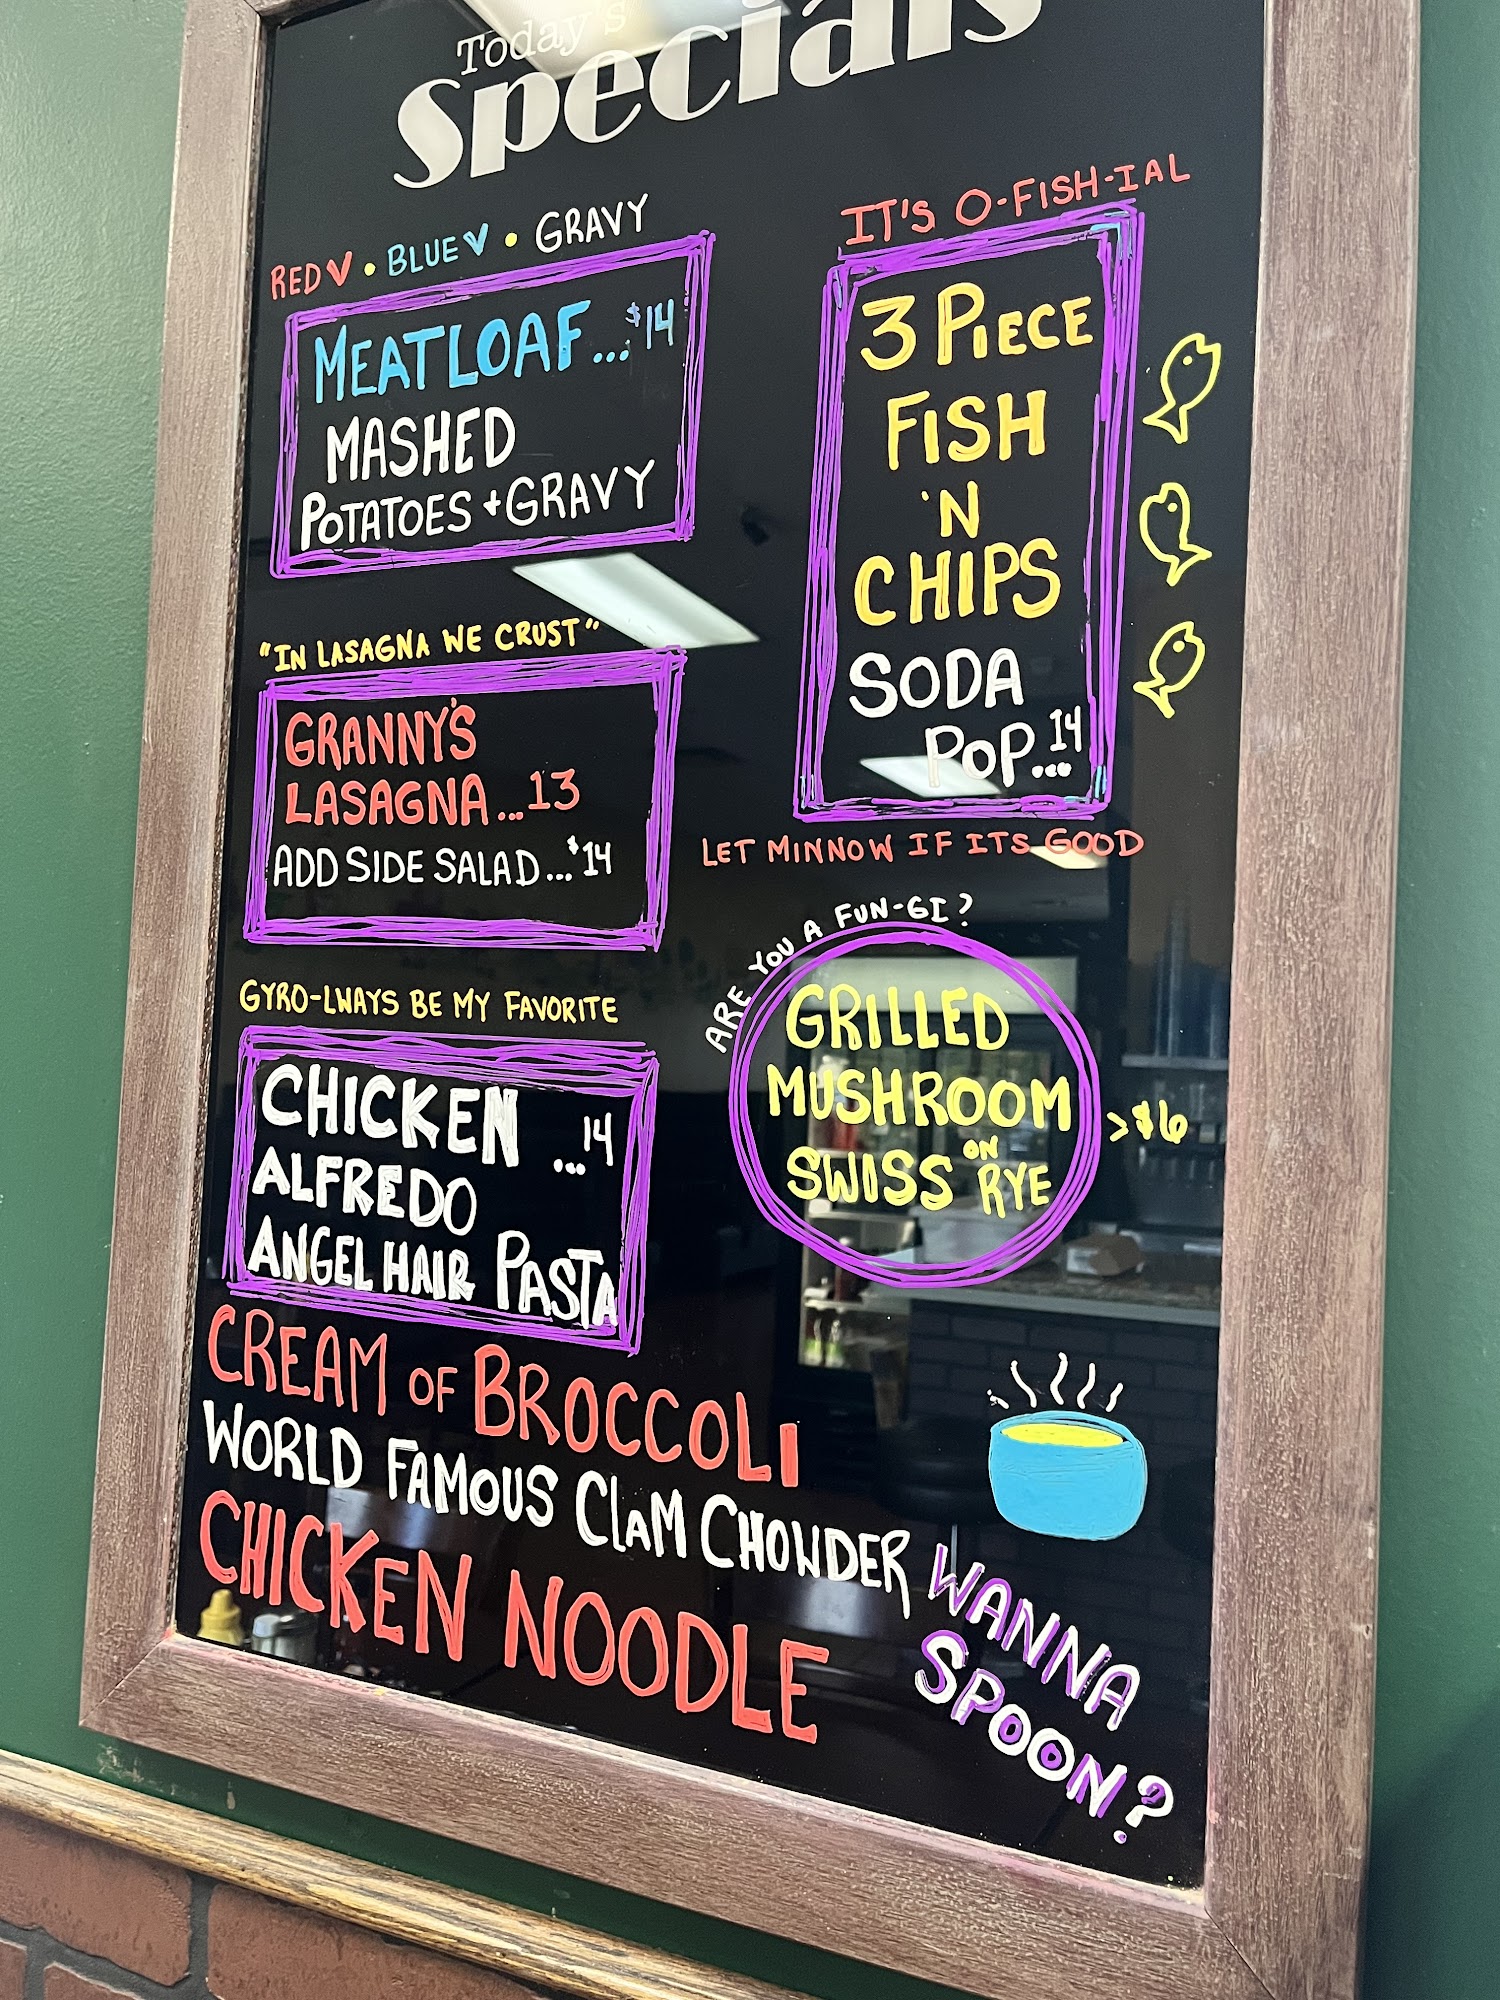 Today's
Specials
RED ♥ • BLUE ♥ • GRAVY
MEATLOAF...$14
MASHED
POTATOES + GRAVY
"IN LASAGNA WE CRUST"
GRANNY'S
LASAGNA...13
ADD SIDE SALAD...$14
GYRO-LWAYS BE MY FAVORITE
CHICKEN ...14
ALFREDO
ANGEL HAIR PASTA
IT'S O-FISH-IAL
3 PIECE
FISH
'N
CHIPS
SODA
POP...14
LET MINNOW IF ITS GOOD
ARE YOU A FUN-GI?
GRILLED
MUSHROOM
SWISS ON RYE
>$6
CREAM OF BROCCOLI
WORLD FAMOUS CLAM CHOWDER
CHICKEN NOODLE
WANNA
SPOON?